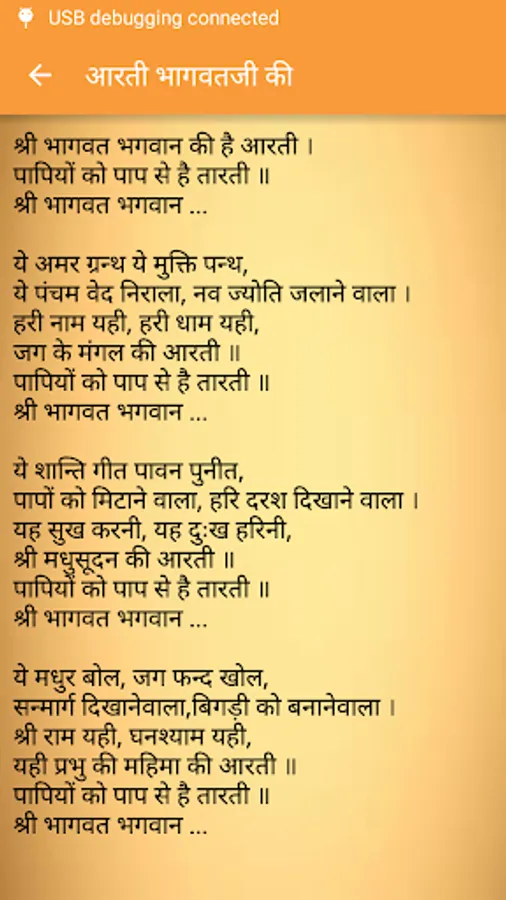 USB debugging connected
आरती भागवतजी की
श्री भागवत भगवान की है आरती ।
पापियों को पाप से है तारती ॥
श्री भागवत भगवान ...
ये अमर ग्रन्थ ये मुक्ति पन्थ,
ये पंचम वेद निराला, नव ज्योति जलाने वाला ।
हरी नाम यही, हरी धाम यही,
जग के मंगल की आरती ॥
पापियों को पाप से है तारती ॥
श्री भागवत भगवान ...
ये शान्ति गीत पावन पुनीत,
पापों को मिटाने वाला, हरि दरश दिखाने वाला ।
यह सुख करनी, यह दुःख हरिनी,
श्री मधुसूदन की आरती ॥
पापियों को पाप से है तारती ॥
श्री भागवत भगवान ...
ये मधुर बोल, जग फन्द खोल,
सन्मार्ग दिखानेवाला,बिगड़ी को बनानेवाला ।
श्री राम यही, घनश्याम यही,
यही प्रभु की महिमा की आरती ॥
पापियों को पाप से है तारती ॥
श्री भागवत भगवान ...